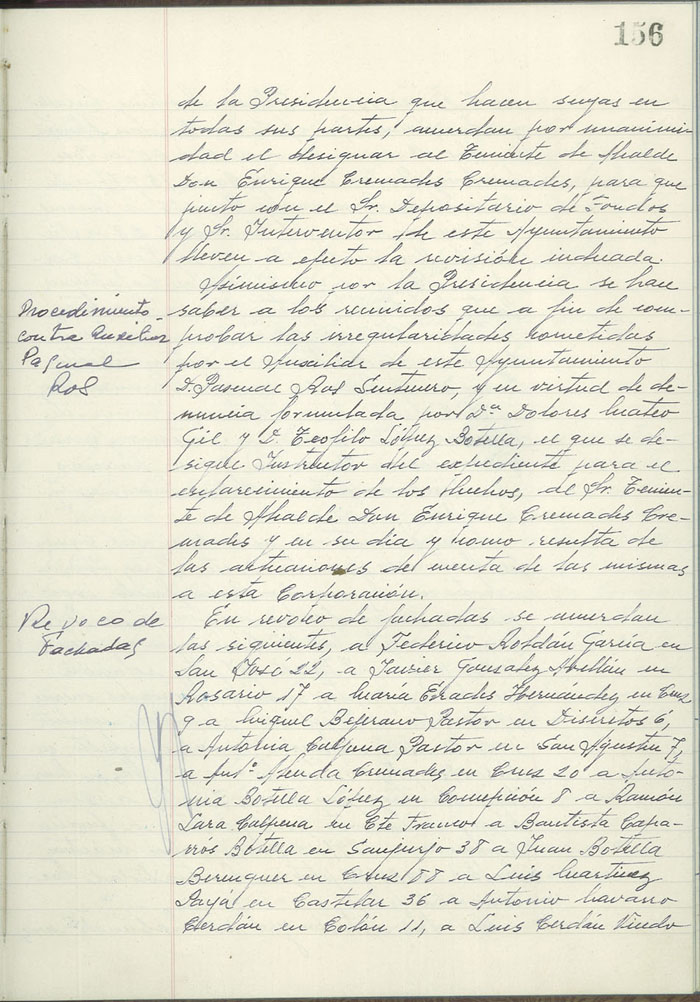 156
de la Presidencia que hacen suyas en
todas sus partes, acuerdan por unanimi-
dad el designar al Teniente de Alcalde
Don Enrique Cremades Cremades, para que
junto con el Sr. Depositario de Fondos
y Sr. Interventor de este Ayuntamiento
lleven a efecto la revisión indicada.
Asimismo por la Presidencia se hace
Procedimiento
contra Auxiliar
Pascual
Ros
saber a los reunidos que a fin de com-
probar las irregularidades cometidas
por el Auxiliar de este Ayuntamiento
D. Pascual Ros Sentenero, y en virtud de de-
nuncia formulada por Dª Dolores Mateo
Gil y D. Teofilo López Botella, el que se de-
signe Instructor del expediente para el
esclarecimiento de los hechos, al Sr. Tenien-
te de Alcalde Don Enrique Cremades Cre-
mades y en su dia y como resulta de
las actuaciones de cuenta de las mismas
a esta Corporación.
Revoco de
Fachadas
En revoco de fachadas se acuerdan
las siguientes, a Federico Roldán García en
San José 22, a Javier Gonzalez Abellán en
Rosario 17 a Maria Erades Hernandez en Cruz
9 a Miguel Bejerano Pastor en Discretos 6,
a Antonia Calpena Pastor en San Agustin 7,
a Antº Cremades en Cruz 20 a Anto-
nia Botella López en Concepción 8 a Ramón
Lara Calpena en Cte Franco a Bautista Capa-
rrós Botella en Sanjurjo 38 a Juan Botella
Berenguer en Cruz 88 a Luis Martinez
Payá en Castelar 36 a Antonio Navarro
Cerdán en Colón 11, a Luis Cerdán Vicedo